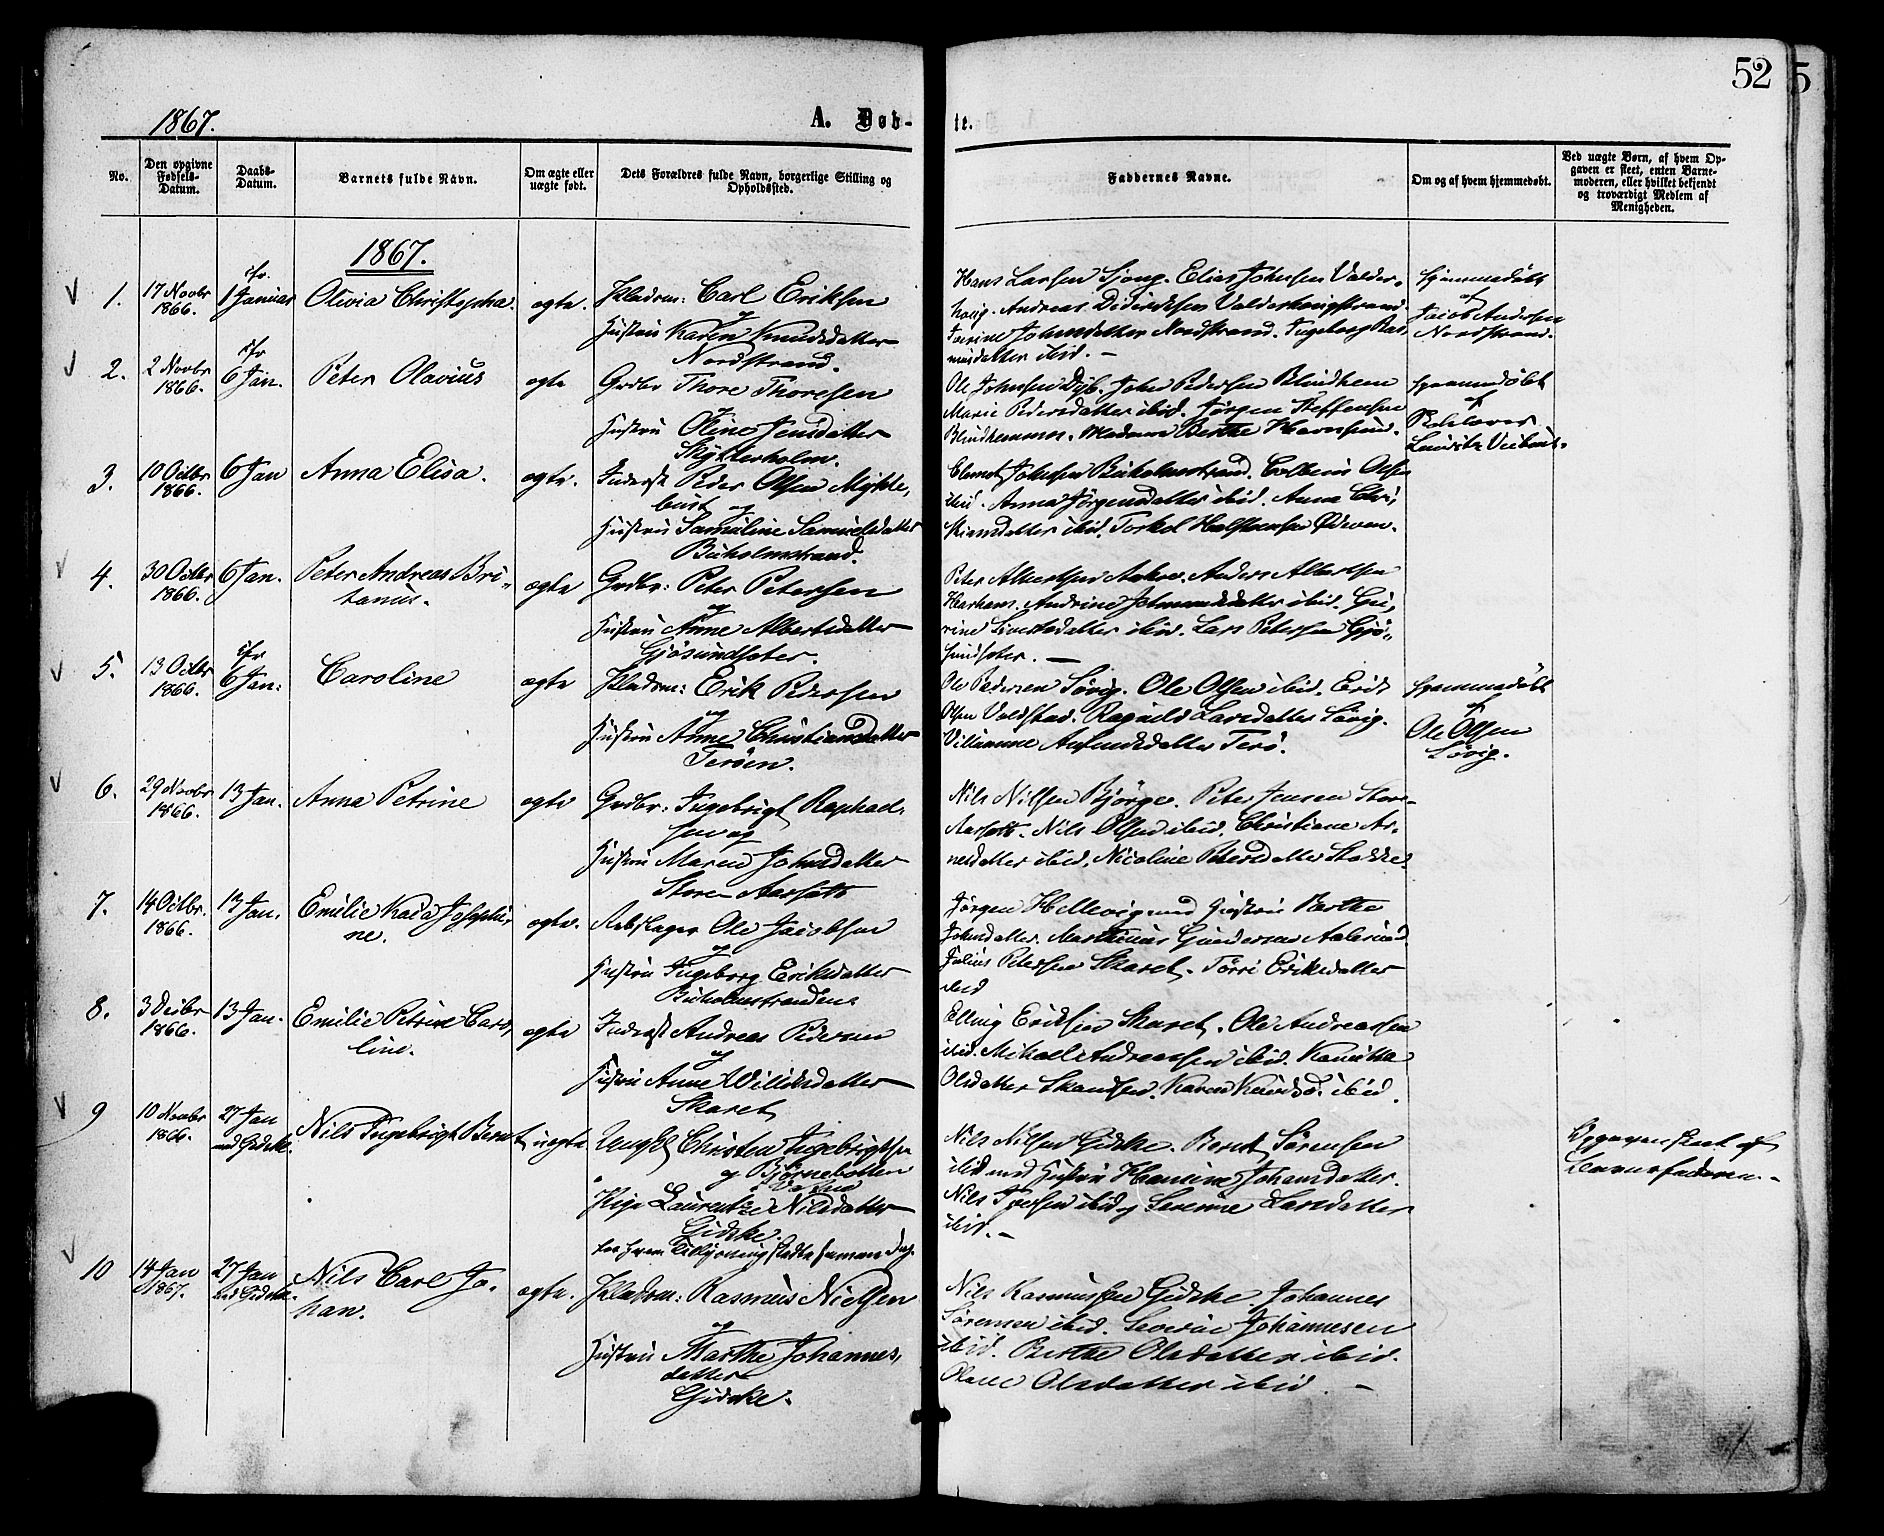 52
5
1867.
A. Døb-
te.
No.
Den opgivne
Fødsels-
Datum.
Daabs-
Datum.
Barnets fulde Navn.
Om ægte eller
uægte født.
Dets Forældres fulde Navn, borgerlige Stilling og
Opholdssted.
Faddernes Navne.
Om og af hvem hjemmedøbt.
Ved uægte Børn, af hvem Op-
gaven er skeet, enten Barne-
moderen, eller hvilket bekjendt
og troværdigt Medlem af
Menigheden.
1867.
1.
17 Novbr
1866.
1 Januar
Olivia Christopha.
ægte.
Pladsm: Carl Eriksen
og
Hustru Karen Knudsdatter
Nordstrand.
Hans Larsen Sjong. Elias Johnsen Valder-
houg. Andreas Didriksen Valderhougstrand
Johnsdatter Nordstrand. Ingeborg Ras-
musdatter ibid. –
Hjemmedøbt
af
Jacob Andersen
Nordstrand.
2.
2 Novbr
1866.
6 Jan.
Peter Olavius
ægte
Grdbr Thore Thoresen
og
Hustru Oline Jensdatter
Skytterholm.
Ole Johnsen Dyb. John Pedersen Blindheim
Marie Pedersdatter ibid. Jørgen Steffensen
Blindheim. Madame Berthe Havnsund.
Hjemmedøbt
af
3.
10 Octbr
1866.
6 Jan
Anna Elisa.
ægte.
Inderst Peder Olsen Mykle-
bust og
Hustru Samuline Samuelsdatter
Buholmstrand.
Clemet Johnsen Buholmstrand. Olsen
ibid. Anna Jørgensdatter ibid. Anna Chri-
stiansdatter ibid. Torkel Halstensen Ødven.
4.
30 Octbr
1866.
6 Jan.
Peter Andreas Bri-
tanus.
ægte
Grdbr: Peter Petersen
og
Hustru Anne Albertsdatter
Gjøsundsæter.
Peter Albertsen Aakre. Anders Albertsen
Harhams. Andrine Johnsdatter ibid. Gu-
rine Sivertsdatter ibid. Lars Petersen Gjø-
sundsæter. –
5.
13 Octbr
1866.
6 Jan:
Caroline
ægte
Pladsm: Erik Pedersen
og
Hustru Anne Christiansdatter
Terøen.
Ole Pedersen Løvig. Ole Olsen ibid. Erik
Olsen Valdstad. Ragnild Larsdatter Løvig.
Knudsdatter Terø.
Hjemmedøbt
af
Ole Olsen
Løvig.
6.
29 Novbr
1866.
13 Jan.
Anna Petrine
ægte
Grdbr: Ingebrigt Raphael-
sen og
Hustru Maren Johnsdatter
Store Aarseth
Nils Nilsen Bjørge. Peter Jensen Store-
Aarseth. Nils Olsen ibid. Christiane Ar-
nesdatter ibid. Nicoline Petersdatter Stokke
7.
14 Octbr.
1866.
13 Jan.
Emilie Kaia Josephi-
ne.
ægte.
Rebslager Ole Jacobsen
og
Hustru Ingeborg Eriksdatter
Buholmstranden
Jørgen Hellevig med Hustru Berthe
Johnsdatter. Martinus Gundersen Aalesund
Julius Petersen Skaret. Eriksdatter
ibid
8.
3 Decbr
1866.
13 Jan.
Emilie Petrine Caro-
line.
ægte
Inderst Andreas Pedersen
og
Hustru Anne Willadsdatter
Skaret
Elling Eriksen Skaret. Ole Andreassen
ibid. Mikael Andreassen ibid. Kanutta
Olsdatter Skandsen. Karen Knudsd: ibid.
9
10 Novbr
1866.
27 Jan
ved Gidske.
Nils Ingebrigt Bernt
uægte
Ungk: Christen Ingebrigtsen
og Bjørnebotten
i Vatne
Pige Laurentze Nilsdatter
Gidske.
Nils Nilsen Gidske. Bernt Sørensen
ibid med Hustru Hansine Johansdatter.
Nils Iversen ibid og Severine Larsdatter
ibid. –
Opgaven skeet af
Barnefaderen. –
10
14 Jan
1867.
27 Jan
ved Gidske.
Nils Carl Jo-
han.
ægte.
Pladsm: Rasmus Nielsen
og
Hustru Marthe Johannes-
datter
Gidske.
Nils Rasmussen Gidske. Johannes
Sørensen ibid. Severin Johannesen
ibid. Berthe Olsdatter ibid.
Olave Olsdatter ibid. –